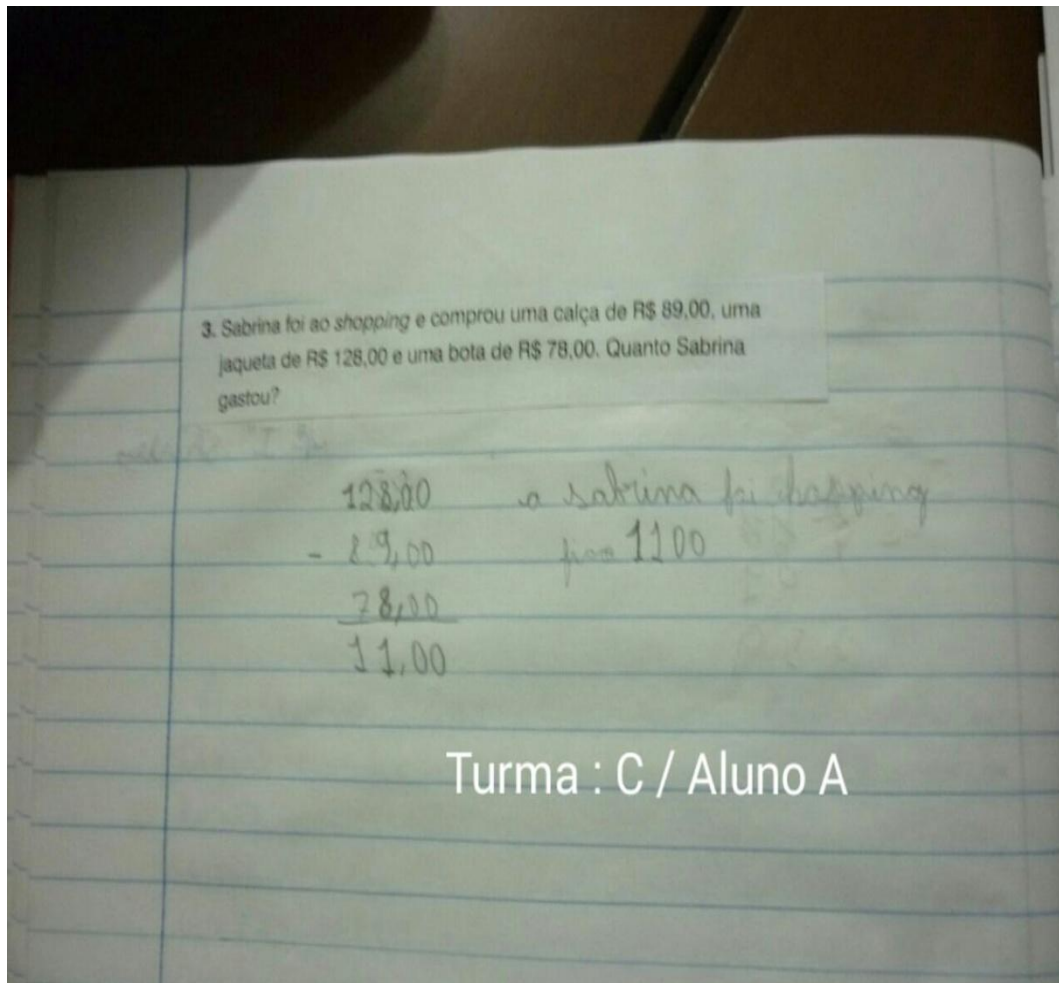 3. Sabrina foi ao shopping e comprou uma calça de R$ 89,00, uma
jaqueta de R$ 128,00 e uma bota de R$ 78,00. Quanto Sabrina
gastou?
128,00
- 89,00
78,00
11,00
a sabrina foi
1100
Turma : C / Aluno A